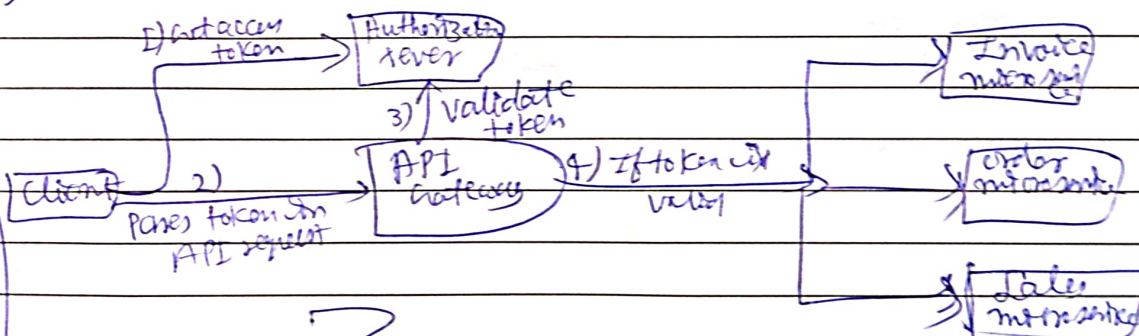 1) Get access
token
Authorization
server
3) validate
token
Client
2)
Passes token in
API request
API
Gateway
4) If token is
valid
Invoice
microservice
Order
microservice
Sales
microservice